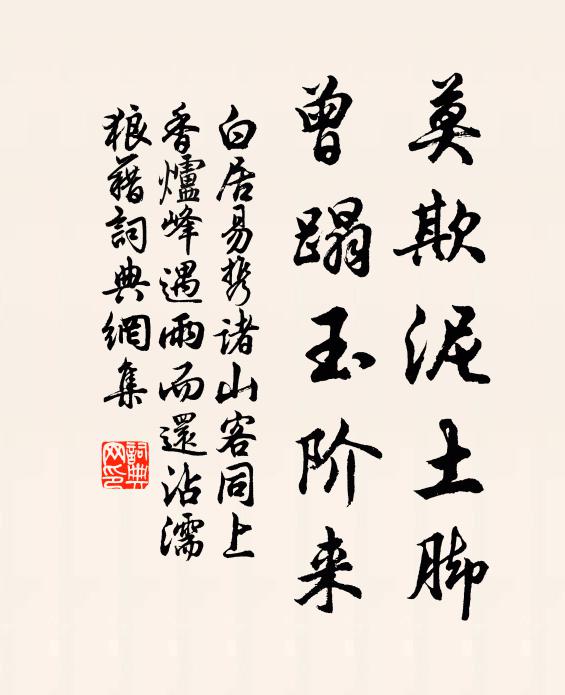 莫欺泥土脚
曾蹋玉阶来
白居易携诸山客同上
香爐峰遇雨而還沾濡
狼藉詞典網集
詞典
网印